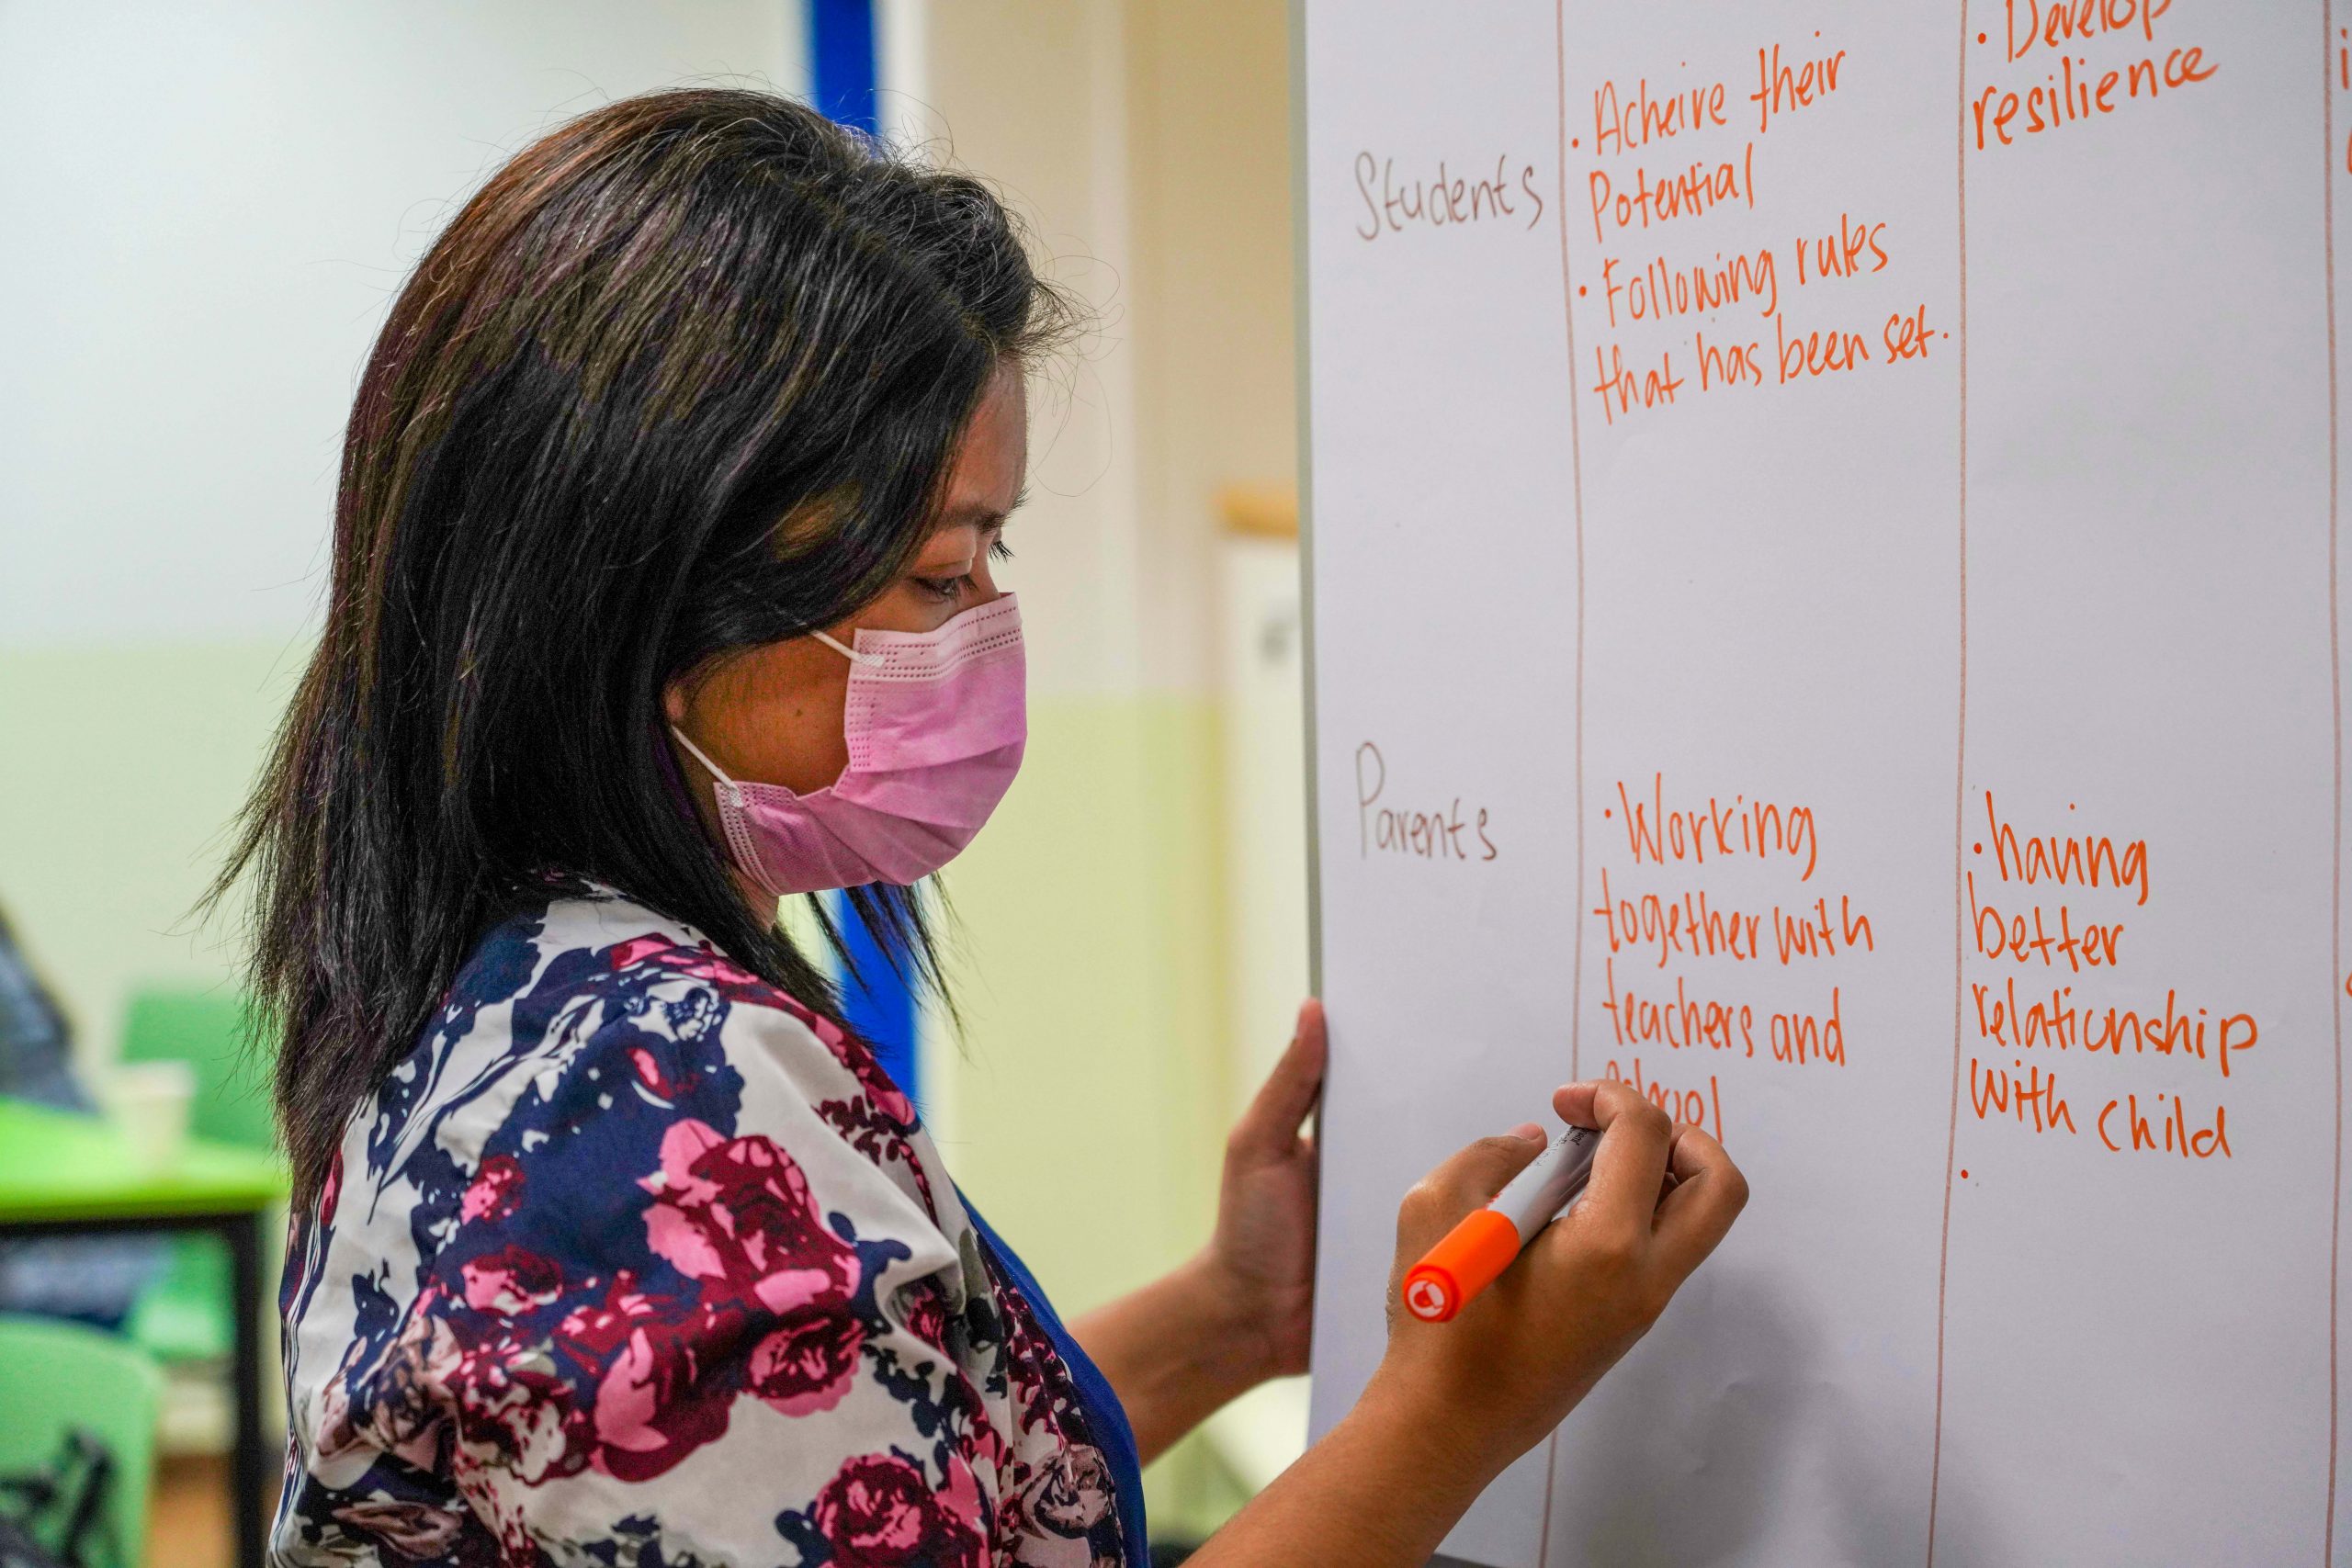 Students
• Acheive their
Potential
• Following rules
that has been set.
• Develop
resilience
Parents
• Working
together with
teachers and
school
• having
better
relationship
with child
•